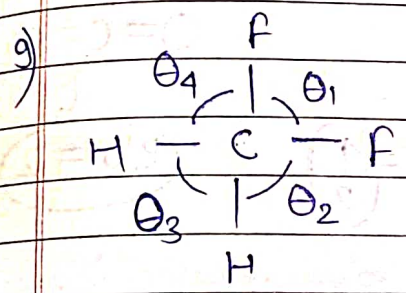 9)
F
θ4 θ1
H — C — F
θ3 θ2
H